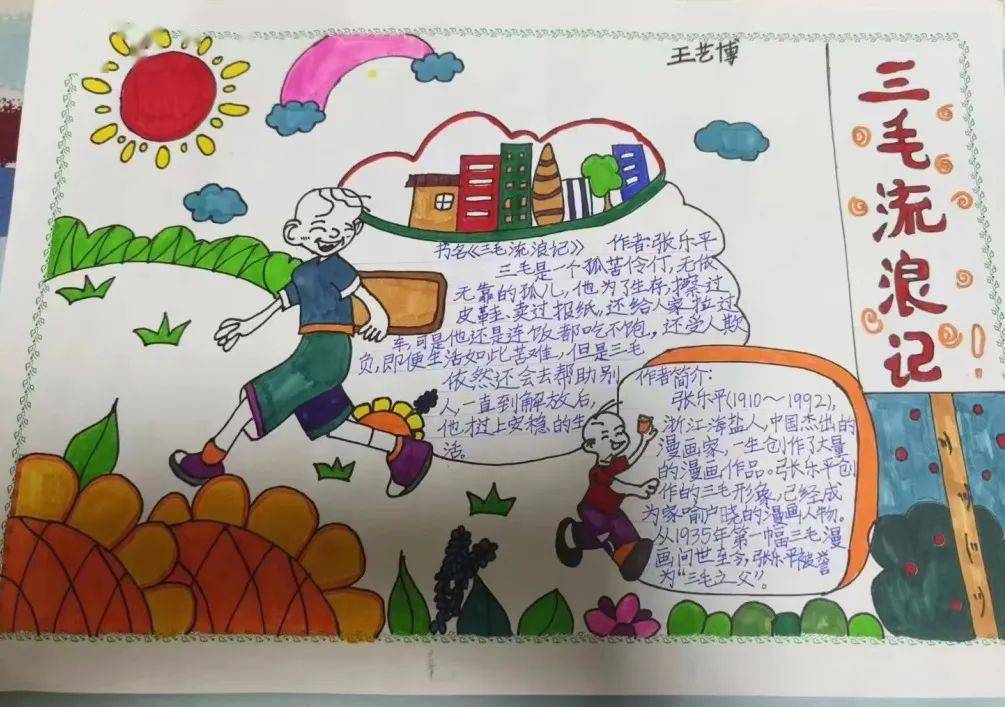 王艺博
三毛流浪记
书名《三毛流浪记》 作者:张乐平
三毛是一个孤苦伶仃,无依
无靠的孤儿,他为了生存,擦过
皮鞋、卖过报纸,还给人家拉过
车,可是他还是连饭都吃不饱,还受人欺
负,即便生活如此苦难,但是三毛
依然还会去帮助别
人,一直到解放后,
他过上安稳的生
活。
作者简介:
张乐平(1910~1992),
浙江海盐人,中国杰出的
漫画家,一生创作了大量
的漫画作品。张乐平创
作的三毛形象,已经成
为家喻户晓的漫画人物。
从1935年第一幅三毛漫
画问世至今,张乐平被誉
为“三毛之父”。